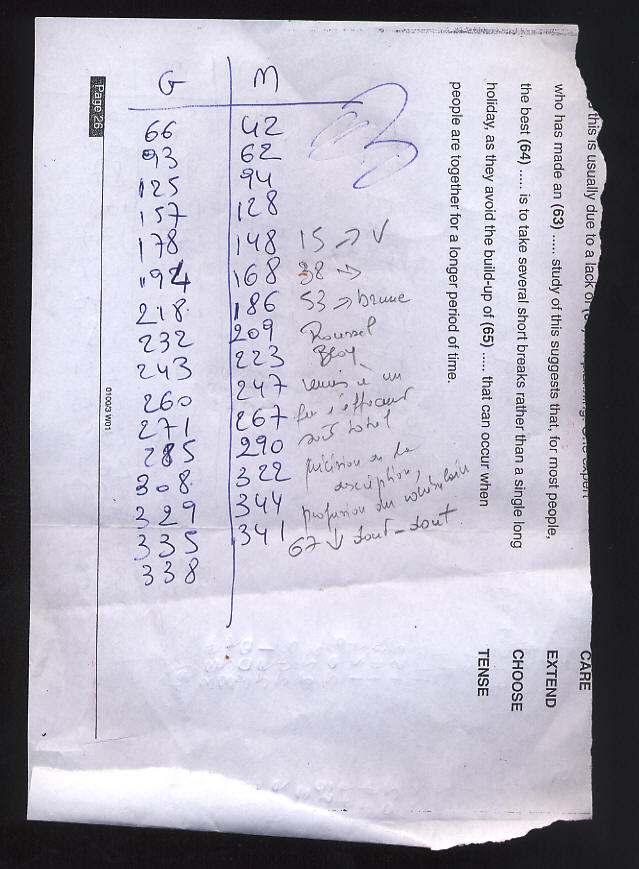 who has made an (63) ..... study of this suggests that, for most people,
the best (64) ..... is to take several short breaks rather than a single long
holiday, as they avoid the build-up of (65) ..... that can occur when
people are together for a longer period of time.
CARE
EXTEND
CHOOSE
TENSE
Page 26
0100/3 W01
G M
66 42
93 62
125 94
157 128
178 148 15 → V
194 168 38 →
218 186 53 → brune
232 209 Roussel
243 223 Bloy
260 247
271 267
285 290
308 322
329 344 profusion du
335 341 67 ↓ tout-tout
338